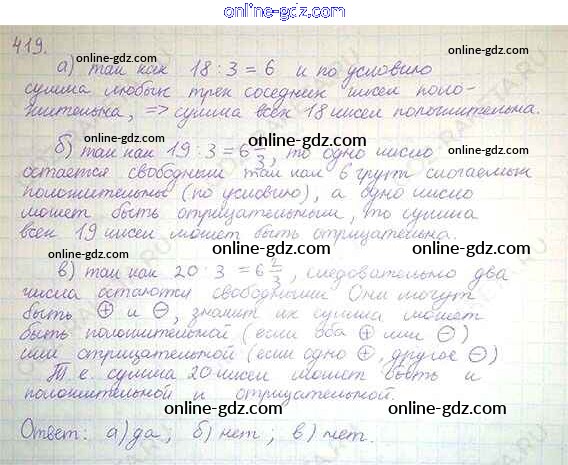 online-gdz.com
419. online-gdz.com online-gdz.com
а) так как 18 : 3 = 6 и по условию
online-gdz.com
сумма любых трех соседних чисел поло-
жительна, => сумма всех 18 чисел положительна.
online-gdz.com
б) так как 19 : 3 = 6 1/3, то одно число online-gdz.com
остается свободным так как 6 групп слагаемых
положительны (по условию), а одно число
online-gdz.com
может быть отрицательными, то сумма
всех 19 чисел может быть отрицательна.
online-gdz.com online-gdz.com
в) так как 20 : 3 = 6 2/3, следовательно два
числа остаются свободными Они могут
online-gdz.com
быть ⊕ и ⊖, значит их сумма может
быть положительной (если оба ⊕ или ⊖)
online-gdz.com
или отрицательной (если одно ⊕, другое ⊖)
online-gdz.com
Т е. сумма 20 чисел может быть и
положительной и отрицательной.
online-gdz.com online-gdz.com
Ответ: а) да; б) нет; в) нет.
online-gdz.com